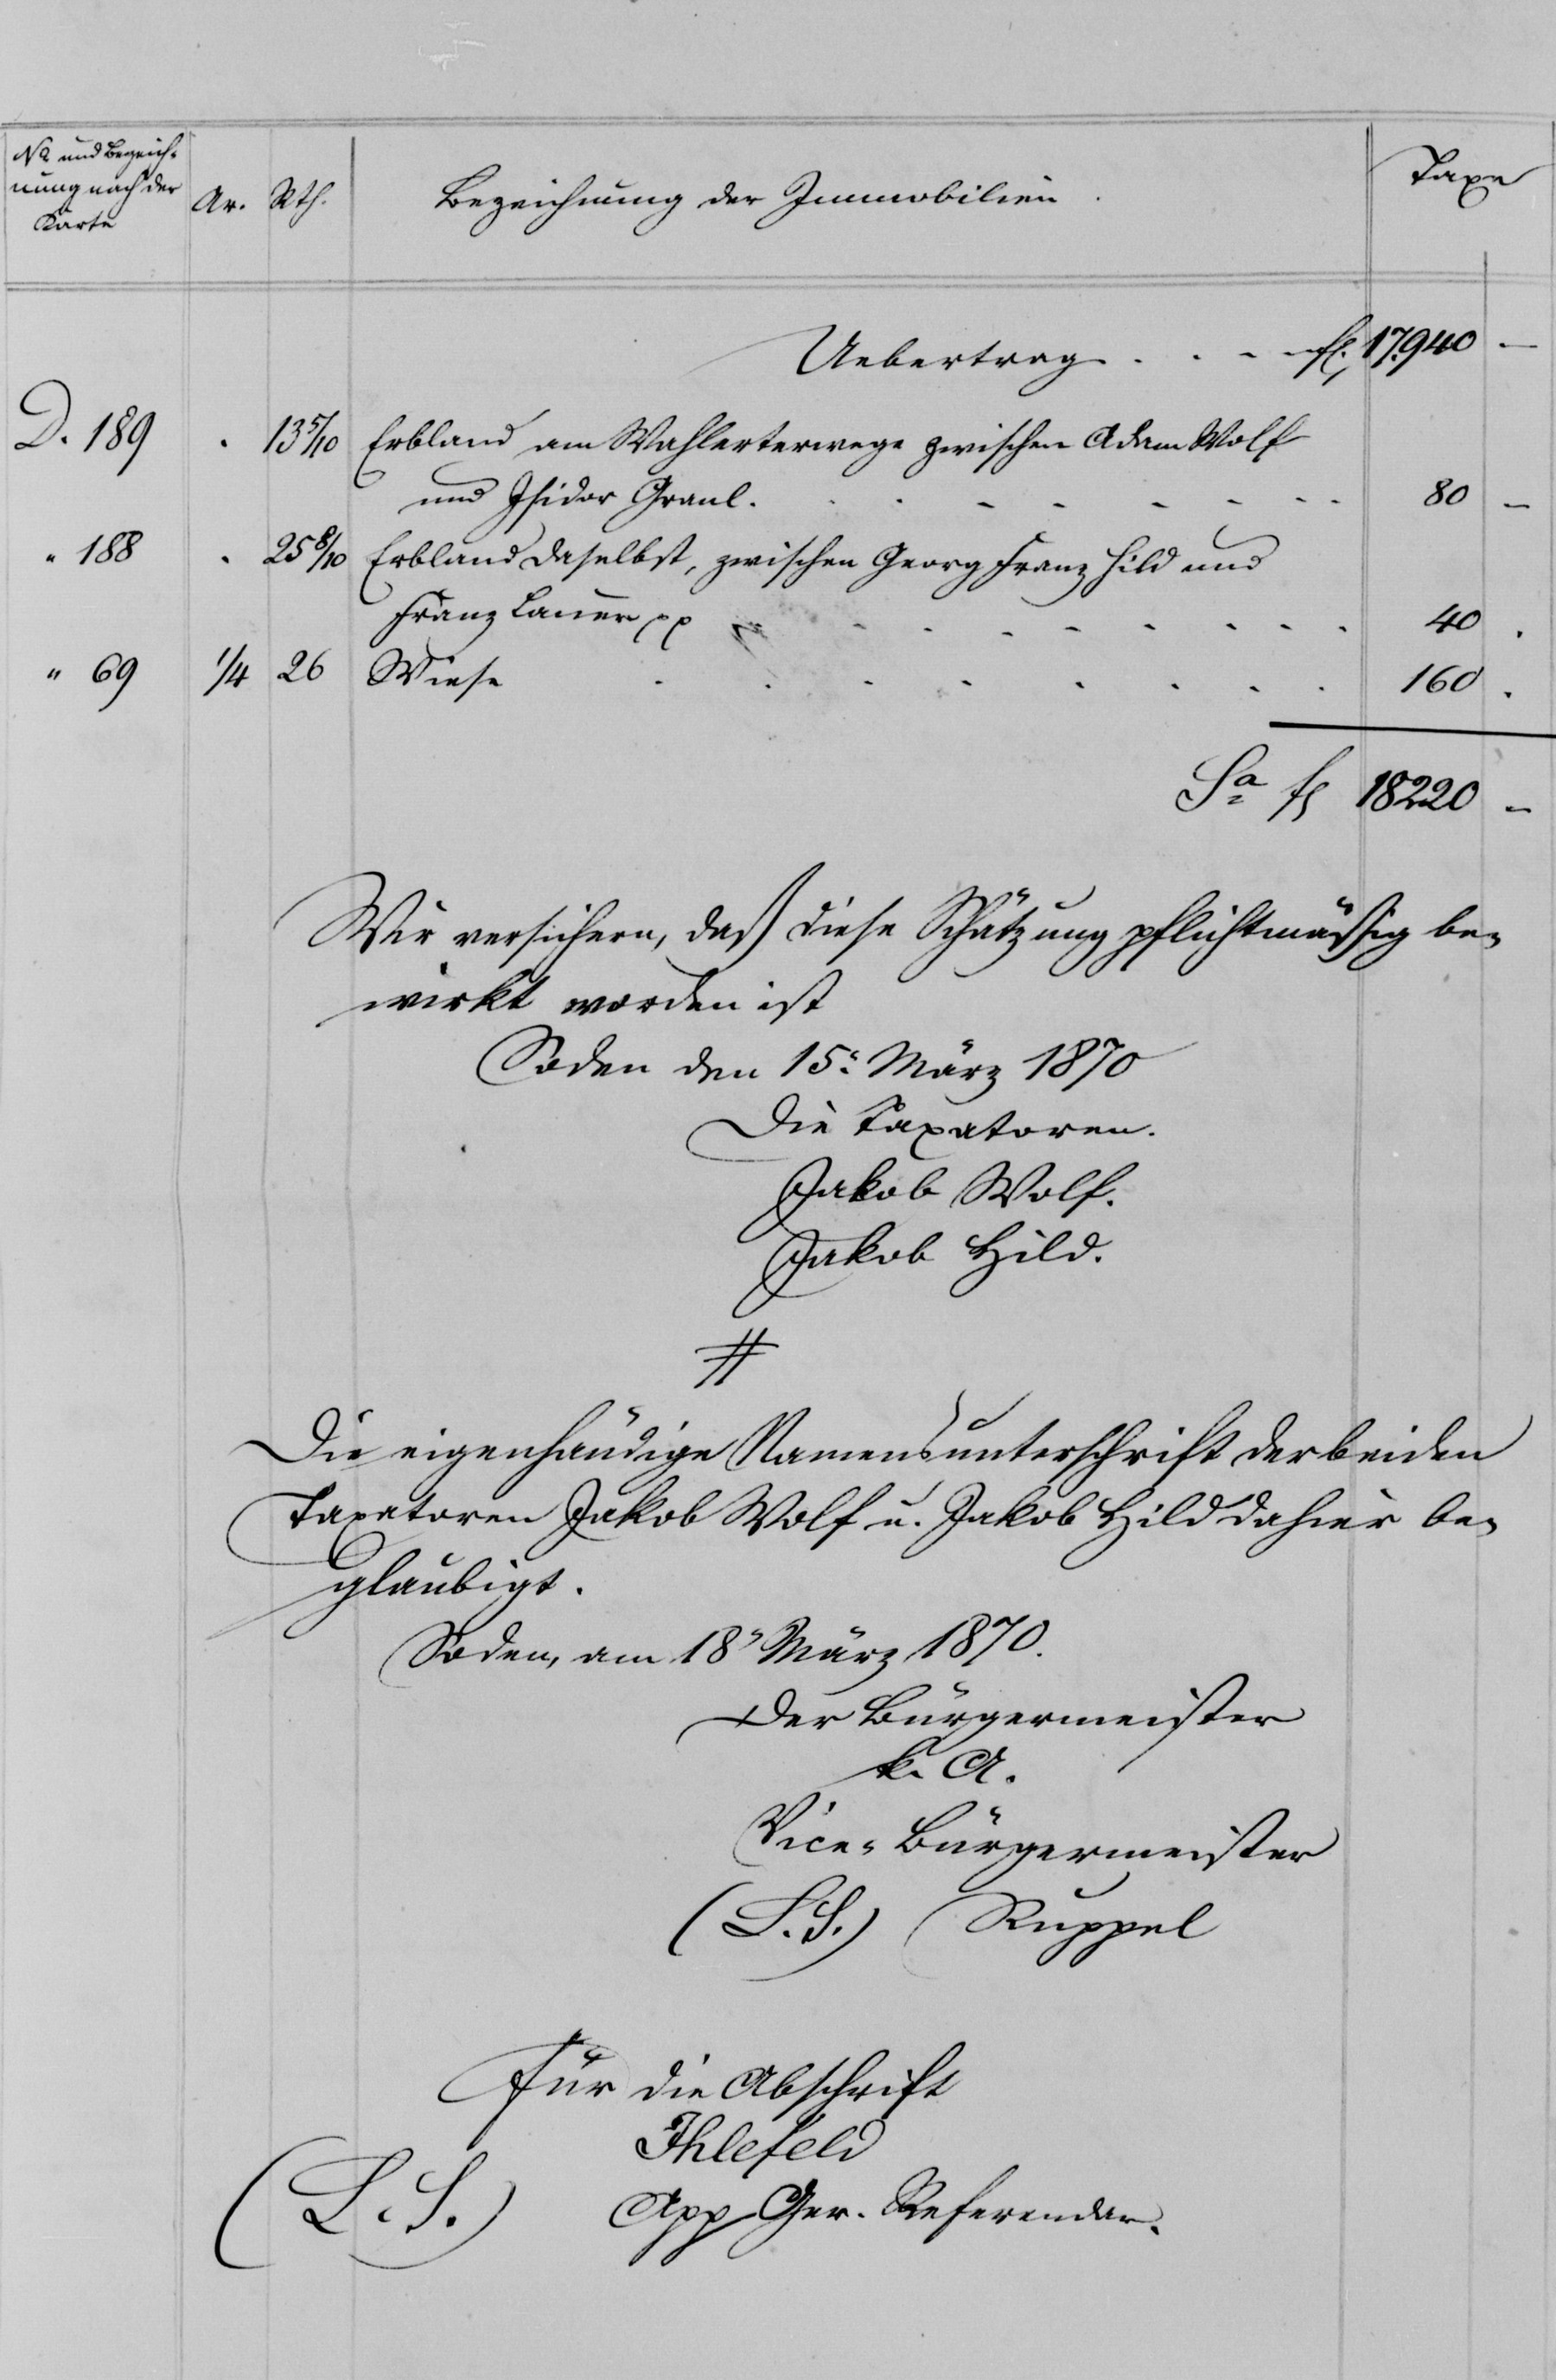 No und Bezeich-
nung nach der
Karte
Ar. Rth. Bezeichnung der Immobilien. Taxe
Uebertrag . . . . fl. 17,940 –
D. 189 . 13 5/10 Erbland am Wahlerterwege zwischen Adam Wolf
und Isidor Graul. 80 –
" 188 . 25 8/10 Erbland daselbst, zwischen Georg Franz Hild und
Franz Lauer pp 40 .
" 69 1/4 26 Wiese 160 .
Sa fl 18220 –
Wir versichern, daß diese Schätzung pflichtmäßig be-
wirkt worden ist
Soden den 15. März 1870
Die Taxatoren.
Jakob Wolf.
Jakob Hild.
#
Die eigenhändige Namensunterschrift der beiden
Taxatoren Jakob Wolf u. Jakob Hild dahier be-
glaubigt.
Soden, am 18. März 1870.
Der Bürgermeister
k. A.
Vice-Bürgermeister
(L.S.) Ruppel
Für die Abschrift
Ihlefeld
(L.S.) App Ger. Referendar.